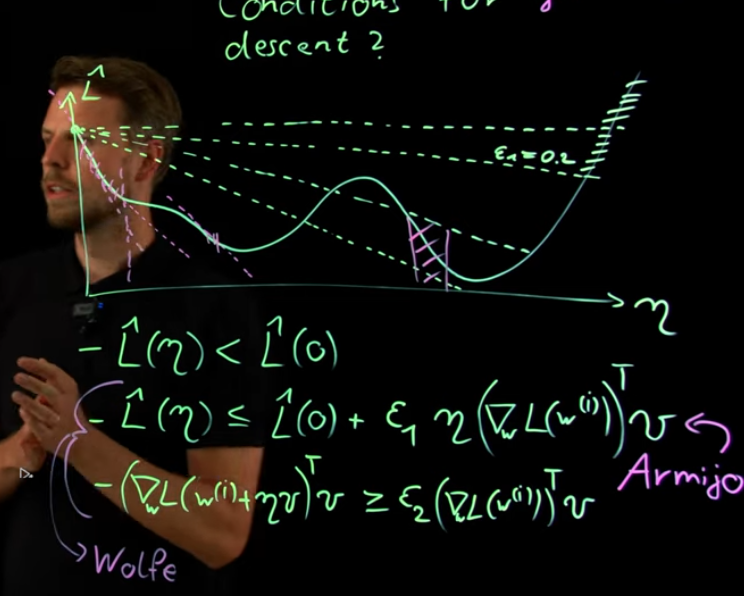 Conditions for
descent ?
L̂
ε₁ = 0.2
η
- L̂(η) < L̂(0)
- L̂(η) ≤ L̂(0) + ε₁ η (∇_w L(w⁽ⁱ⁾))ᵀ v
Armijo
- (∇_w L(w⁽ⁱ⁾ + ηv))ᵀ v ≥ ε₂ (∇_w L(w⁽ⁱ⁾))ᵀ v
Wolfe